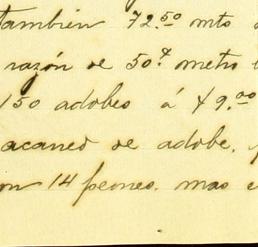 también 72.50 mto
razón de 50. metro
150 adobes á 49.00
acarreo de adobe,
14 peones. mas